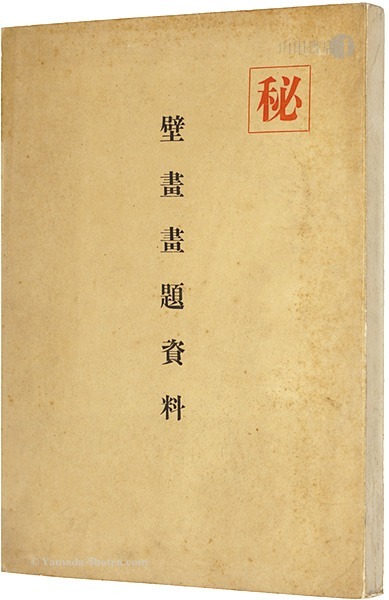 秘
壁畫畫題資料
山田書店
© Yamada-Shoten.com